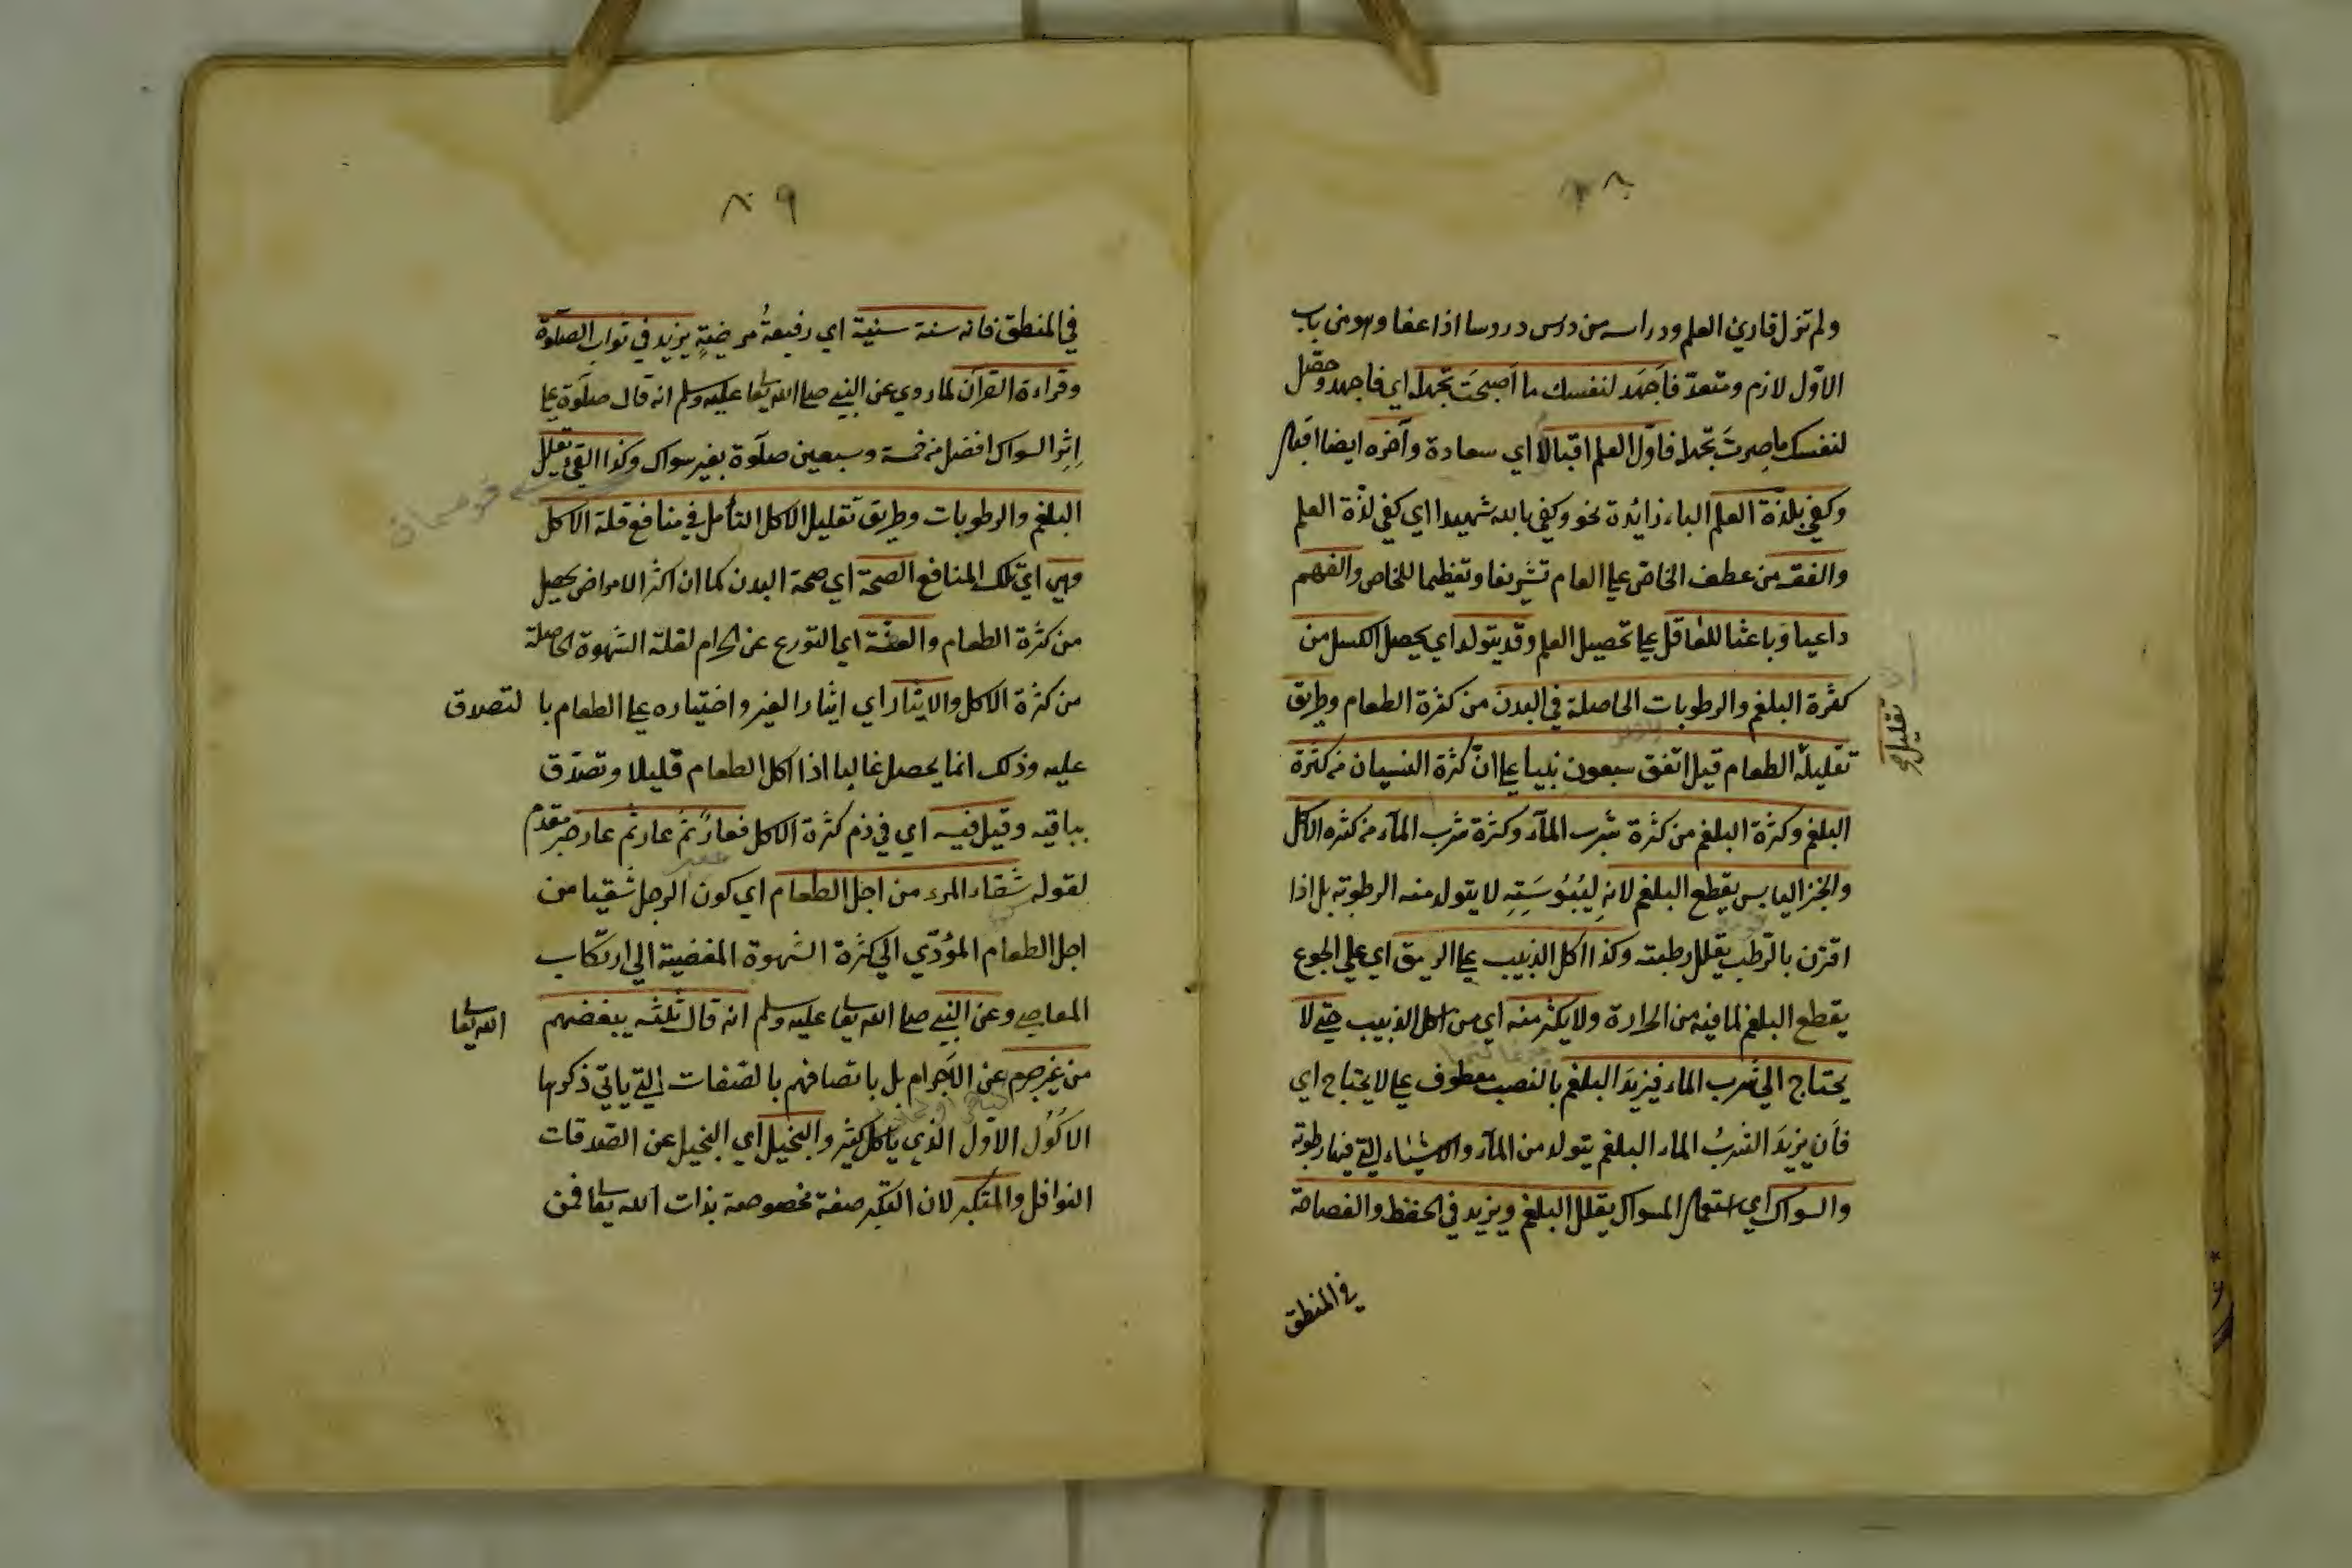 ٨٨
ولم تزل قارئ العلم ودراسه من درس دروسا اذا عفا وهو من باب
الاوّل لازم ومتعدّ فاَجهَد لنفسك ما اَصبحتَ تجهَد اي فاجهد وحصّل
لنفسك ما صرتَ بجهد فاوّل العلم اقبالٌ اي سعادة وآخره ايضا اقبال
وكفى بلذّة العلم الباء زائدة نحو وكفى بالله شهيدا اي كفى لذّة العلم
والفقه من عطف الخاصّ على العام تشريفا وتعظيما للخاص والفهم
داعيا وباعثا للعاقل على تحصيل العلم وقد يتولد اي يحصل الكسل من
كثرة البلغم والرطوبات الحاصلة في البدن من كثرة الطعام وطريق
تقليله
تقليله الطعام قيل اتفق سبعون نبيا على انّ كثرة النسيان من كثرة
البلغم وكثرة البلغم من كثرة شرب المآء وكثرة شرب المآء من كثرة الاكل
والخبز اليابس يقطع البلغم لانهِ ليُبُوسَتِهِ لا يتولد منه الرطوبة بل اذا
اقترن بالرّطب يقلل رطبته وكذا اكل الذبيب على الريق اي على الجوع
يقطع البلغم لما فيه من الحرارة ولا يكثر منه اي من اكل الذبيب حتى لا
يحتاج الى شرب الماء فيزيدَ البلغم بالنصب معطوف على لا يحتاج اي
فاَن يزيدَ الشربُ الماء البلغم يتولد من المآء والاشياء التي فيها رطوبة
والسواك اي استعمال المسواك يقلل البلغم ويزيد في الحفظ والفصاحة
في المنطق
٨٩
في المنطق فانه سنة سنية اي رفيعةُ مرضيةٍ يزيد في ثواب الصلوة
وقراءة القرآن لما روي عن النبي صلى الله تعا عليه وسلم انه قال صلوة على
اِثِر السواك افضل من خمسة وسبعين صلوة بغير سواك وكذا القئ يقلل
البلغم والرطوبات وطريق تقليل الاكل التأمل في منافع قلة الاكل
وهي اي تلك المنافع الصحة اي صحة البدن كما ان اكثر الامراض يحصل
من كثرة الطعام والعفّة اي التورع عن الحرام لقلة الشهوة الحاصلة
من كثرة الاكل والايثار اي ايثار الغير واختياره على الطعام با لتصدق
عليه وذلك انما يحصل غالبا اذا اكل الطعام قليلا وتصدّق
بباقيه وقيل فيه اي في ذم كثرة الاكل فعارٌ ثم عار ثم عار خبر مقدم
لقوله شقاء المرء من اجل الطعام اي كون الرجل شقيا من
اجل الطعام المؤدّي الى كثرة الشهوة المفضية الى ارتكاب
المعاصي وعن النبي صلى الله تعا عليه وسلم انه قال ثلثه يبغضهم الله تعا
من غير جرم عن الاَجرام بل باتصافهم بالصّفات التي ياتي ذكرها
الاَكُوُل الاوّل الذي ياكل كثير والبخيل اي البخيل عن الصّدقات
النوافل والمتكبر لان التكبر صفة مخصوصة بذات الله تعا فمن